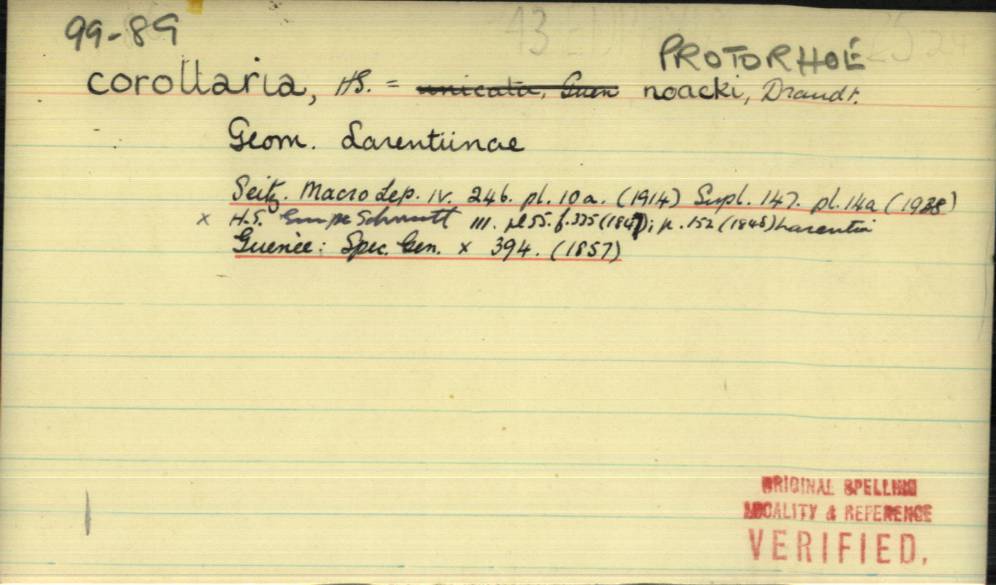 99-89
PROTORHOË
corollaria, HS. = unicata, Guen noacki, Draudt.
Geom. Larentiinae
Seitz. Macro Lep. IV. 246. pl. 10a. (1914) Supl. 147. pl. 14a (1938)
x H.S. Schmett III. pl 55. f. 335 (1847); p. 152 (1848) Larentia
Guenée: Spec. Gen. x 394. (1857)
ORIGINAL SPELLING
LOCALITY & REFERENCE
VERIFIED.